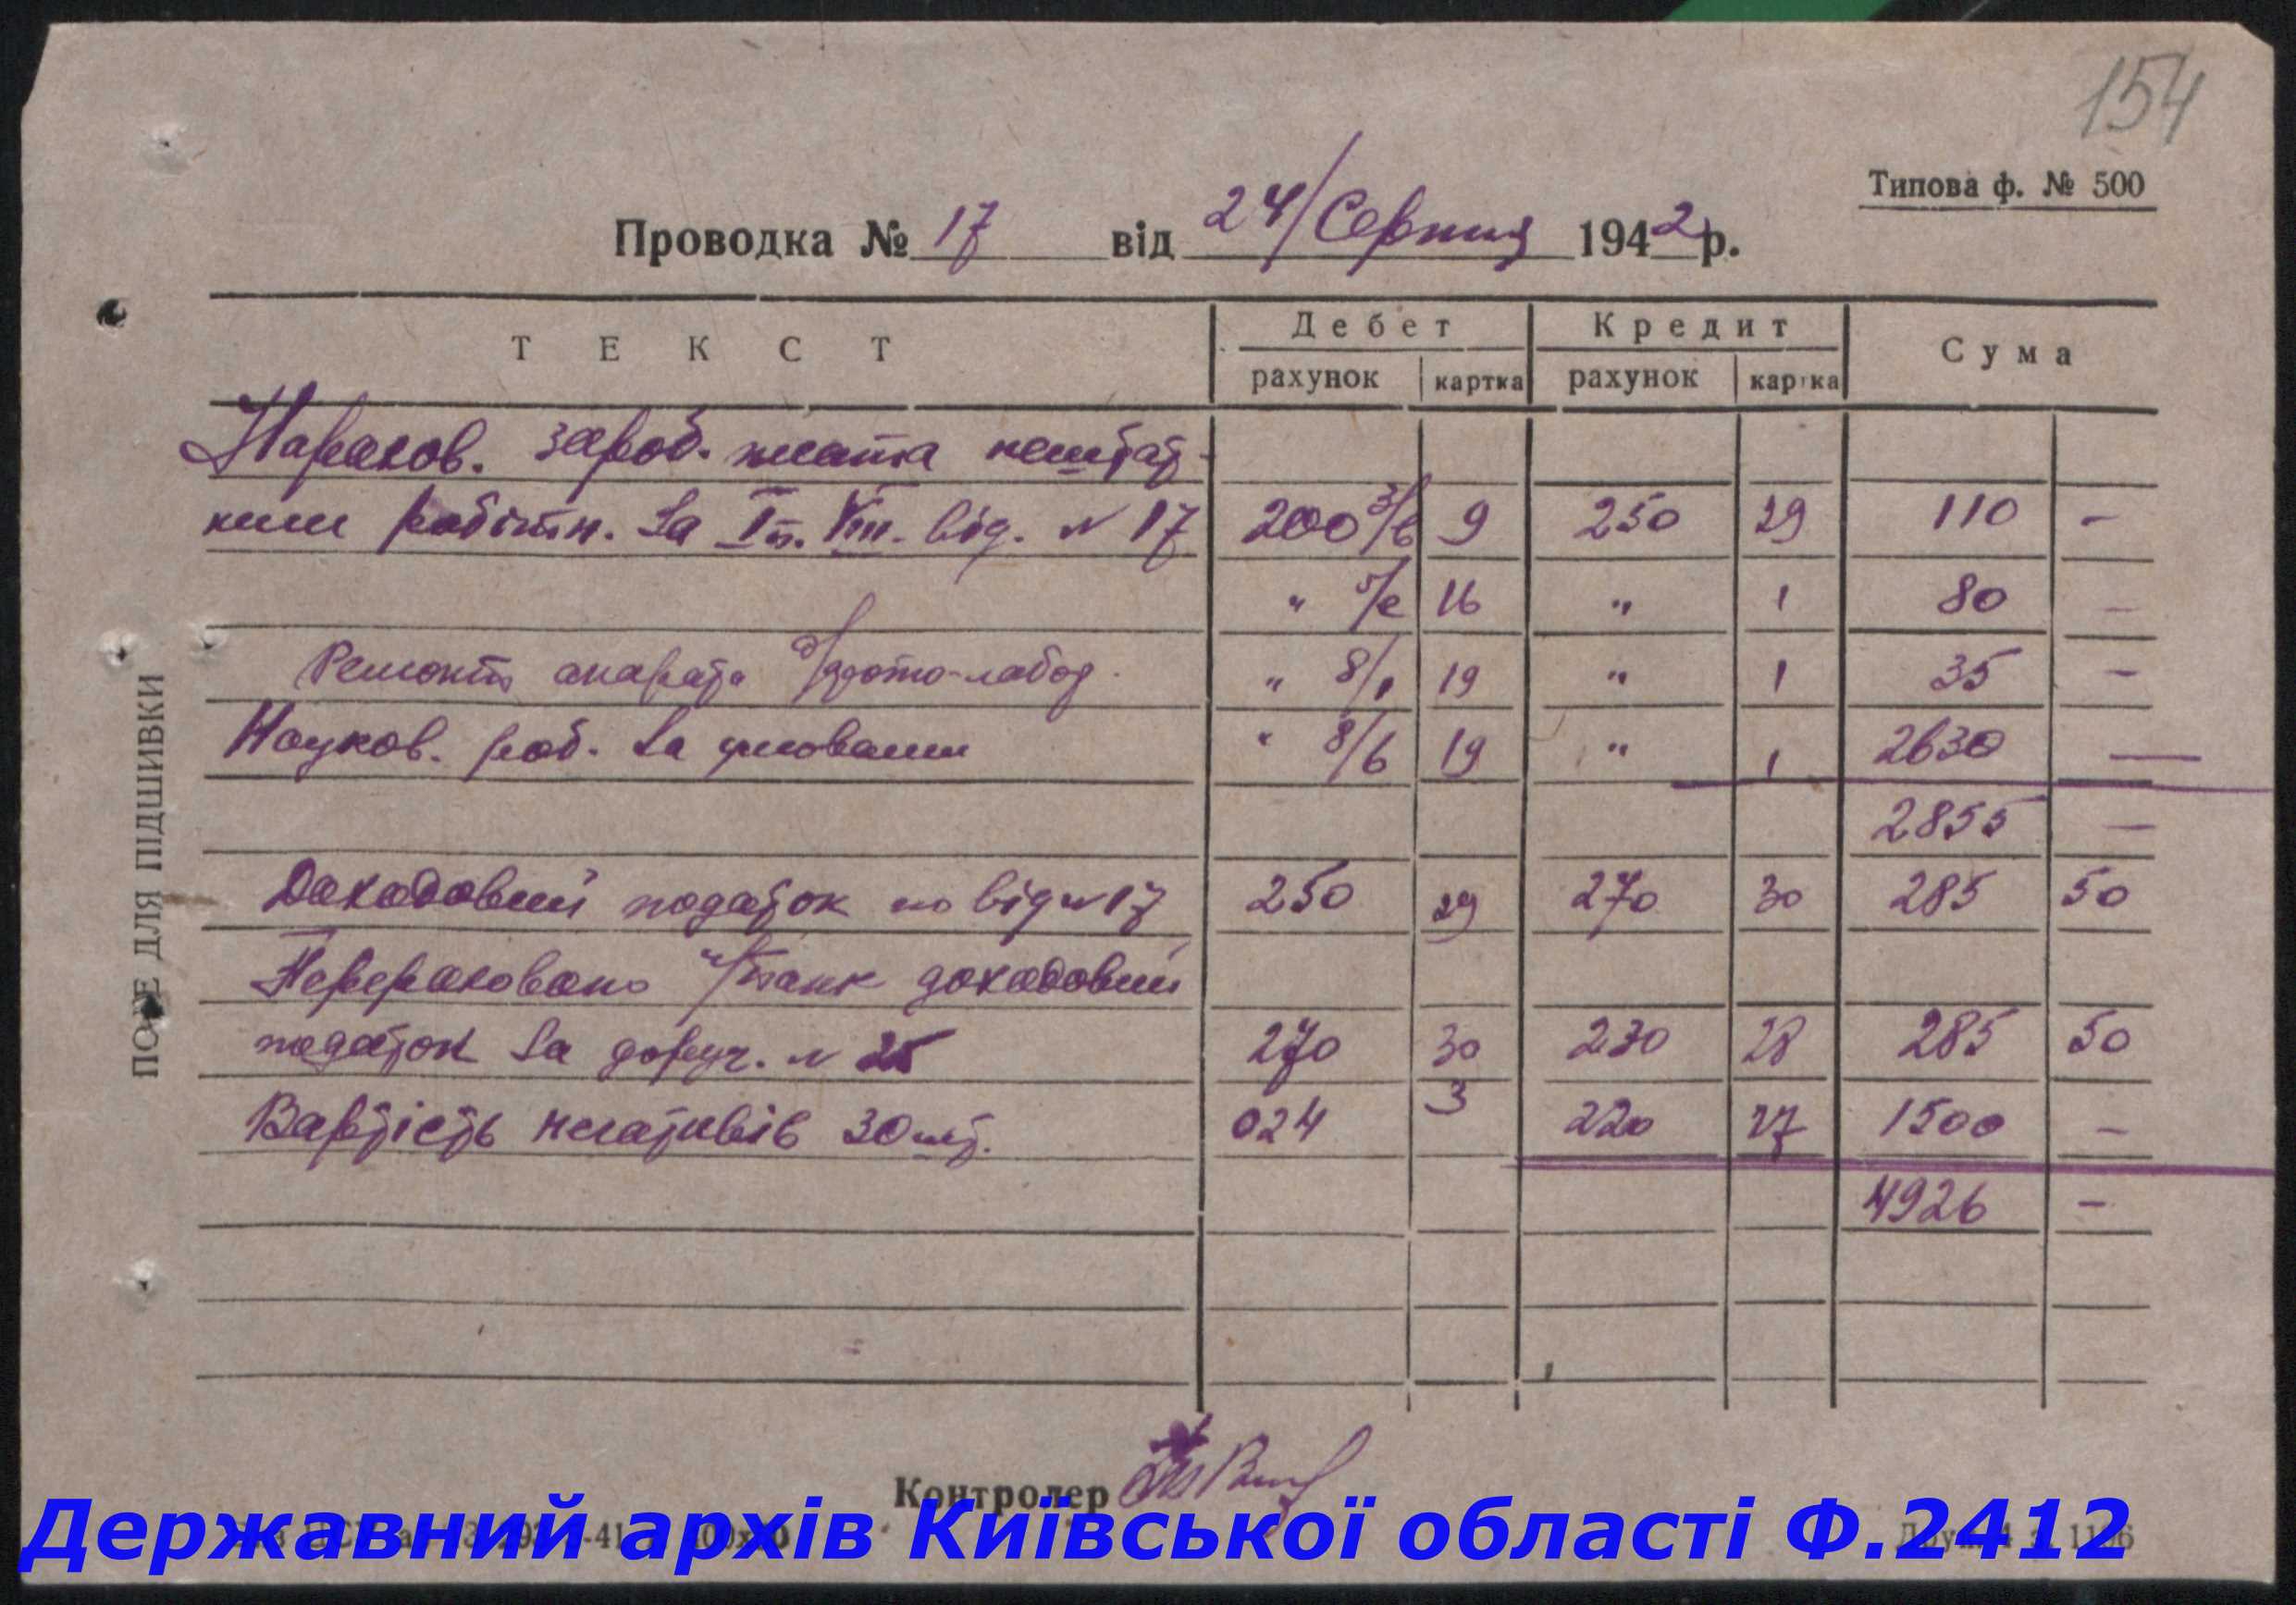 154
Типова ф. № 500
Проводка № 17 від 24/Серпня 1942 р.
ТЕКСТ Дебет Кредит Сума
рахунок картка рахунок картка
Нарахов. зароб. плата нештат-
ним робітн. за І п. VIII. від. N 17 200 3/6 9 250 29 110 -
" 5/е 16 " 1 80 -
Ремонт апарата д/фото-лабор. " 8/1 19 " 1 35 -
Науков. роб. за умовами " 8/6 19 " 1 2630 -
2855 -
Доходовий податок по від N 17 250 29 270 30 285 50
Перераховано ч/банк доходовий
податок за доруч. N 25 270 30 230 28 285 50
Вартість негативів 30 шт. 024 3 220 27 1500 -
4926 -
ПОЛЕ ДЛЯ ПІДШИВКИ
Контролер
Державний архів Київської області Ф.2412